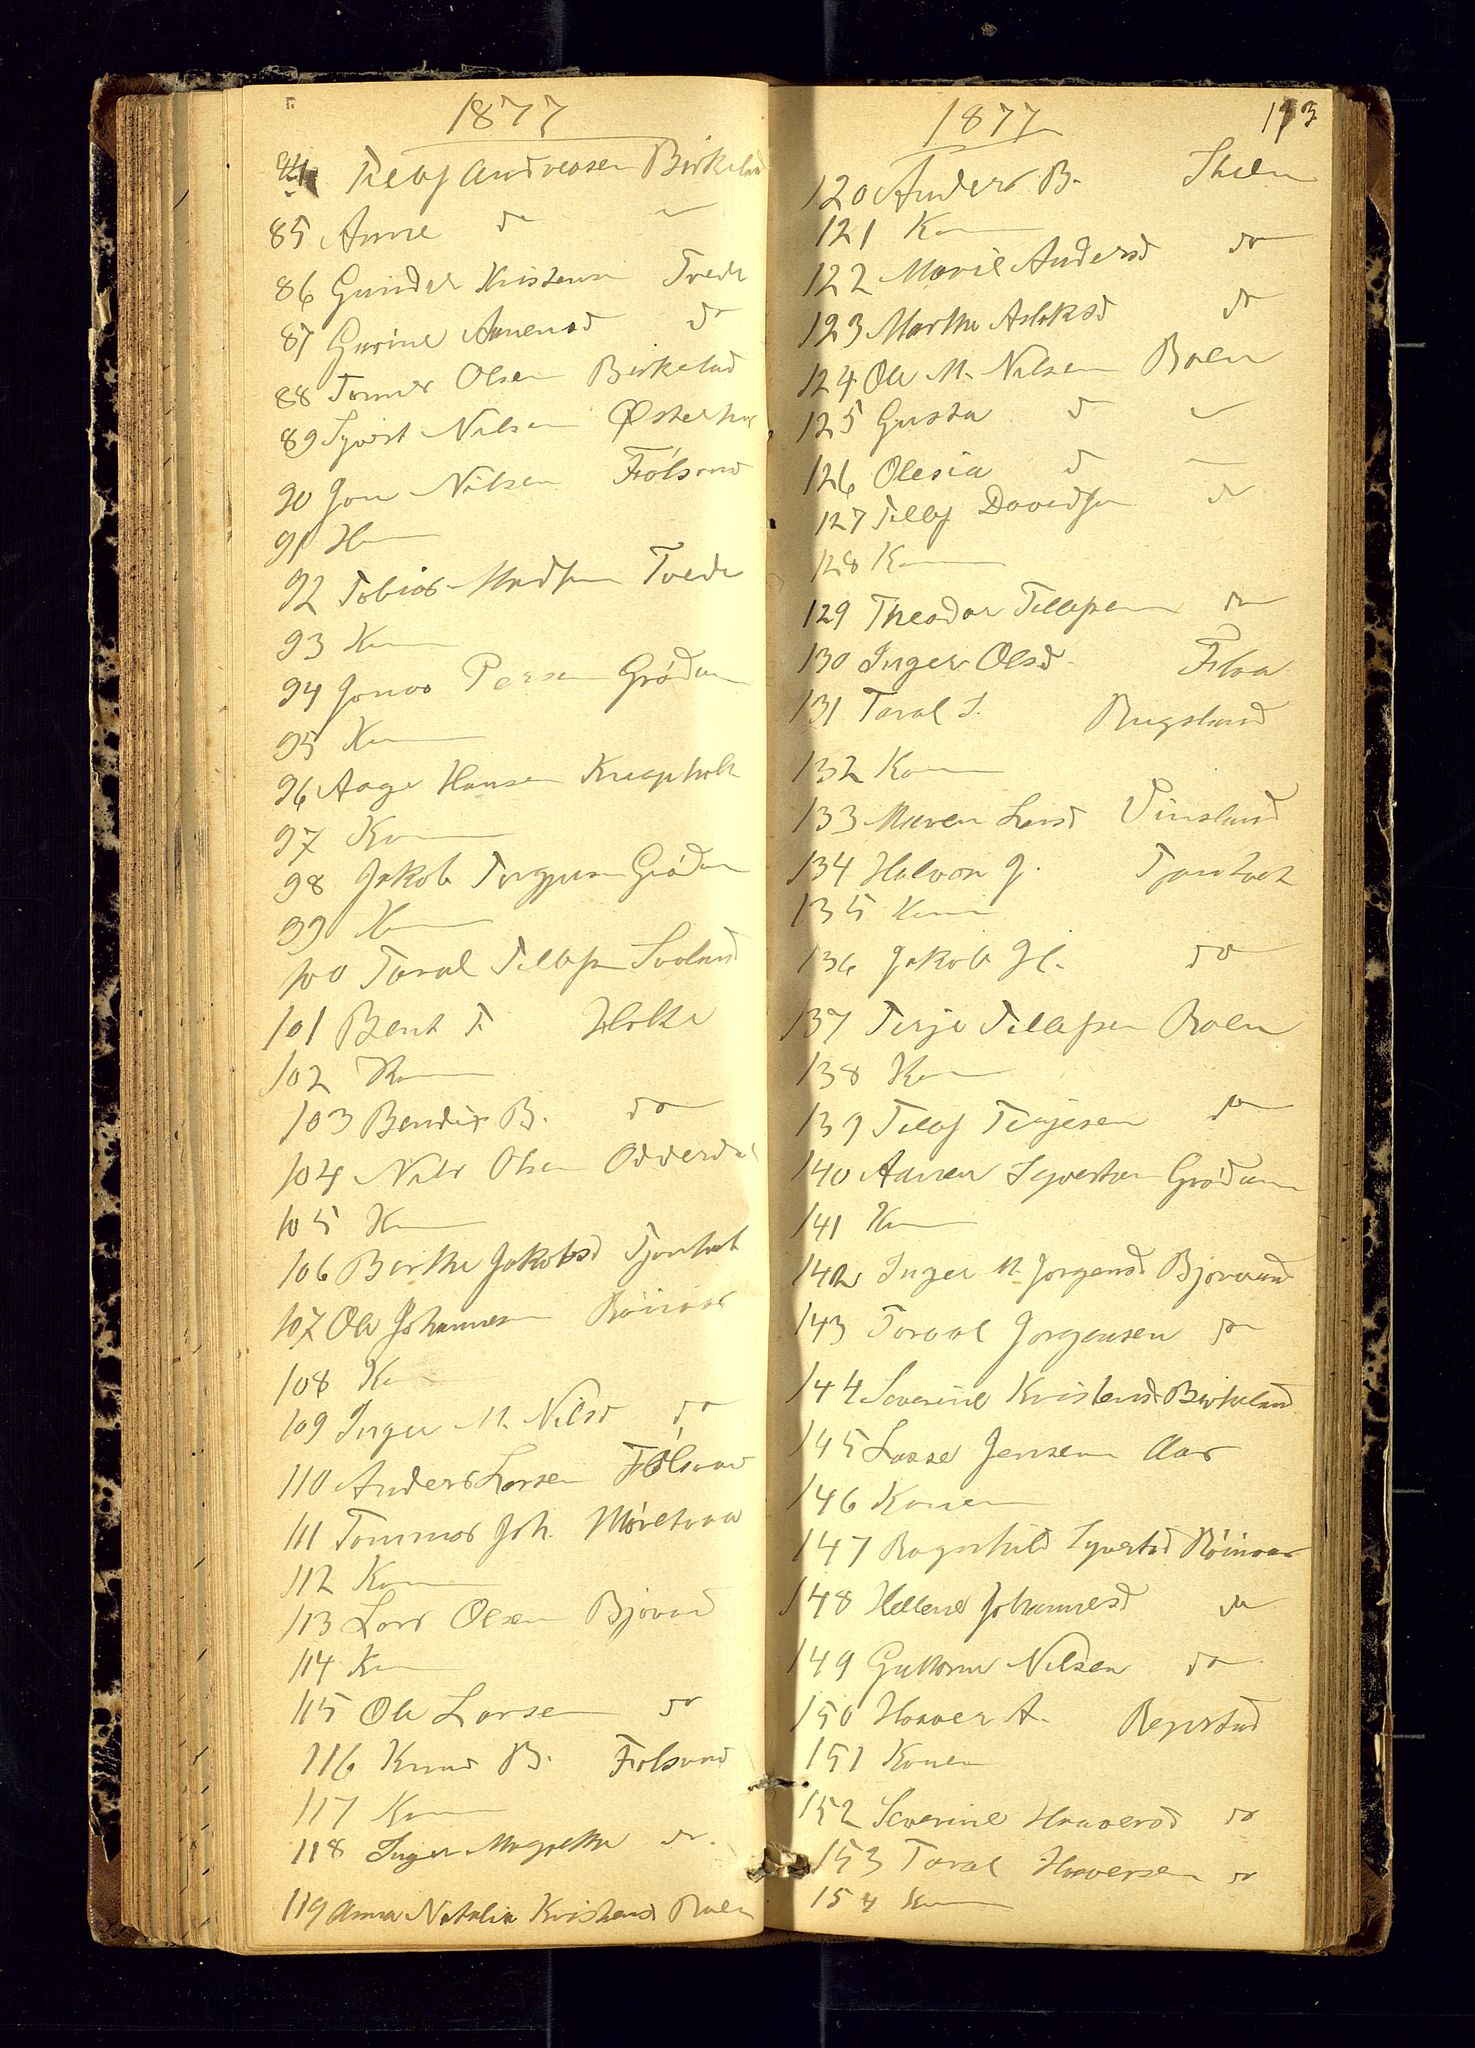 1877
84 Tellef Andreasen Birkeland
85 Anne do
86 Gunder Kristensen Tvede
87 Gurine Aanensd do
88 Tommes Olsen Birkeland
89 Syvert Nilsen Østerhus
90 Jon Nilsen Fiølsvand
91 Kone
92 Tobias Madssen Tvede
93 Kone
94 Jonas Persen Grødum
95 Kone
96 Aage Hansen Knapholt
97 Kone
98 Jakob Torgjusen Grødum
99 Kone
100 Taral Tellefsen Svaland
101 Bent T. Holte
102 Kone
103 Bendix B. do
104 Nils Olsen Odderdal
105 Kone
106 Berthe Jakobsd Tjomhat
107 Ole Johannesen Röinaas
108 Kone
109 Inger M. Nilsd do
110 Anders Larsen Fiølsvand
111 Tommas Joh. Mörelvaa
112 Kone
113 Lars Olsen Bjovand
114 Kone
115 Ole Larsen do
116 Knud B. Fiølsvand
117 Kone
118 Inger Magrethe do
119 Anna Natalia Kristensd Boen
1877 193
120 Anders B. Skeen
121 Kone
122 Marie Andersd do
123 Marthe Aslaksd do
124 Ole M. Nilsen Boen
125 Gusta d
126 Olesia d
127 Tellef Davidsen do
128 Kone
129 Theodor Tellefsen do
130 Inger Olsd. Fløa
131 Taral S. Rugsland
132 Kone
133 Maren Larsd Vinsland
134 Halvor J. Tjomhat
135 Kone
136 Jakob H. do
137 Terje Tellefsen Boen
138 Kone
139 Tellef Terjesen do
140 Aanen Syvertsen Grødum
141 Kone
142 Inger M. Jørgensd Bjovand
143 Taraal Jørgensen do
144 Severine Kristensd Birkeland
145 Lasse Jensen Aas
146 Konen
147 Ragnhild Syvertsd Röinaas
148 Hellene Johannesd do
149 Guttorm Nilsen do
150 Haaver A. Repstad
151 Konen
152 Severine Haaversd do
153 Taral Haaversen do
154 Kone